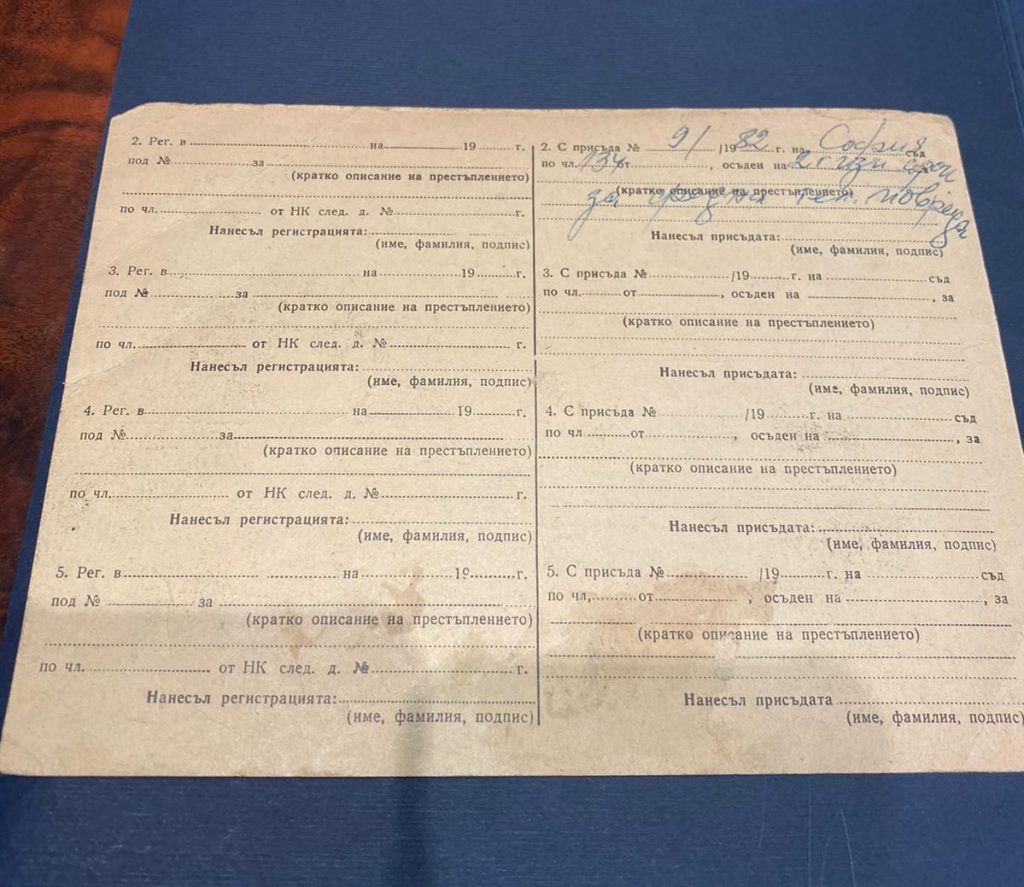 2. Рег. в на 19 г.
под № за
(кратко описание на престъплението)
по чл. от НК след. д. № г.
Нанесъл регистрацията:
(име, фамилия, подпис)
3. Рег. в на 19 г.
под № за
(кратко описание на престъплението)
по чл. от НК след. д. № г.
Нанесъл регистрацията:
(име, фамилия, подпис)
4. Рег. в на 19 г.
под № за
(кратко описание на престъплението)
по чл. от НК след. д. № г.
Нанесъл регистрацията:
(име, фамилия, подпис)
5. Рег. в на 19 г.
под № за
(кратко описание на престъплението)
по чл. от НК след. д. № г.
Нанесъл регистрацията:
(име, фамилия, подпис)
2. С присъда № 9/ /1982 г. на София съд
по чл. 134 от , осъден на 2
(кратко описание на престъплението)
за средна тел. повреда
Нанесъл присъдата:
(име, фамилия, подпис)
3. С присъда № /19 г. на съд
по чл. от , осъден на , за
(кратко описание на престъплението)
Нанесъл присъдата:
(име, фамилия, подпис)
4. С присъда № /19 г. на съд
по чл. от , осъден на , за
(кратко описание на престъплението)
Нанесъл присъдата:
(име, фамилия, подпис)
5. С присъда № /19 г. на съд
по чл, от , осъден на , за
(кратко описание на престъплението)
Нанесъл присъдата
(име, фамилия, подпис)